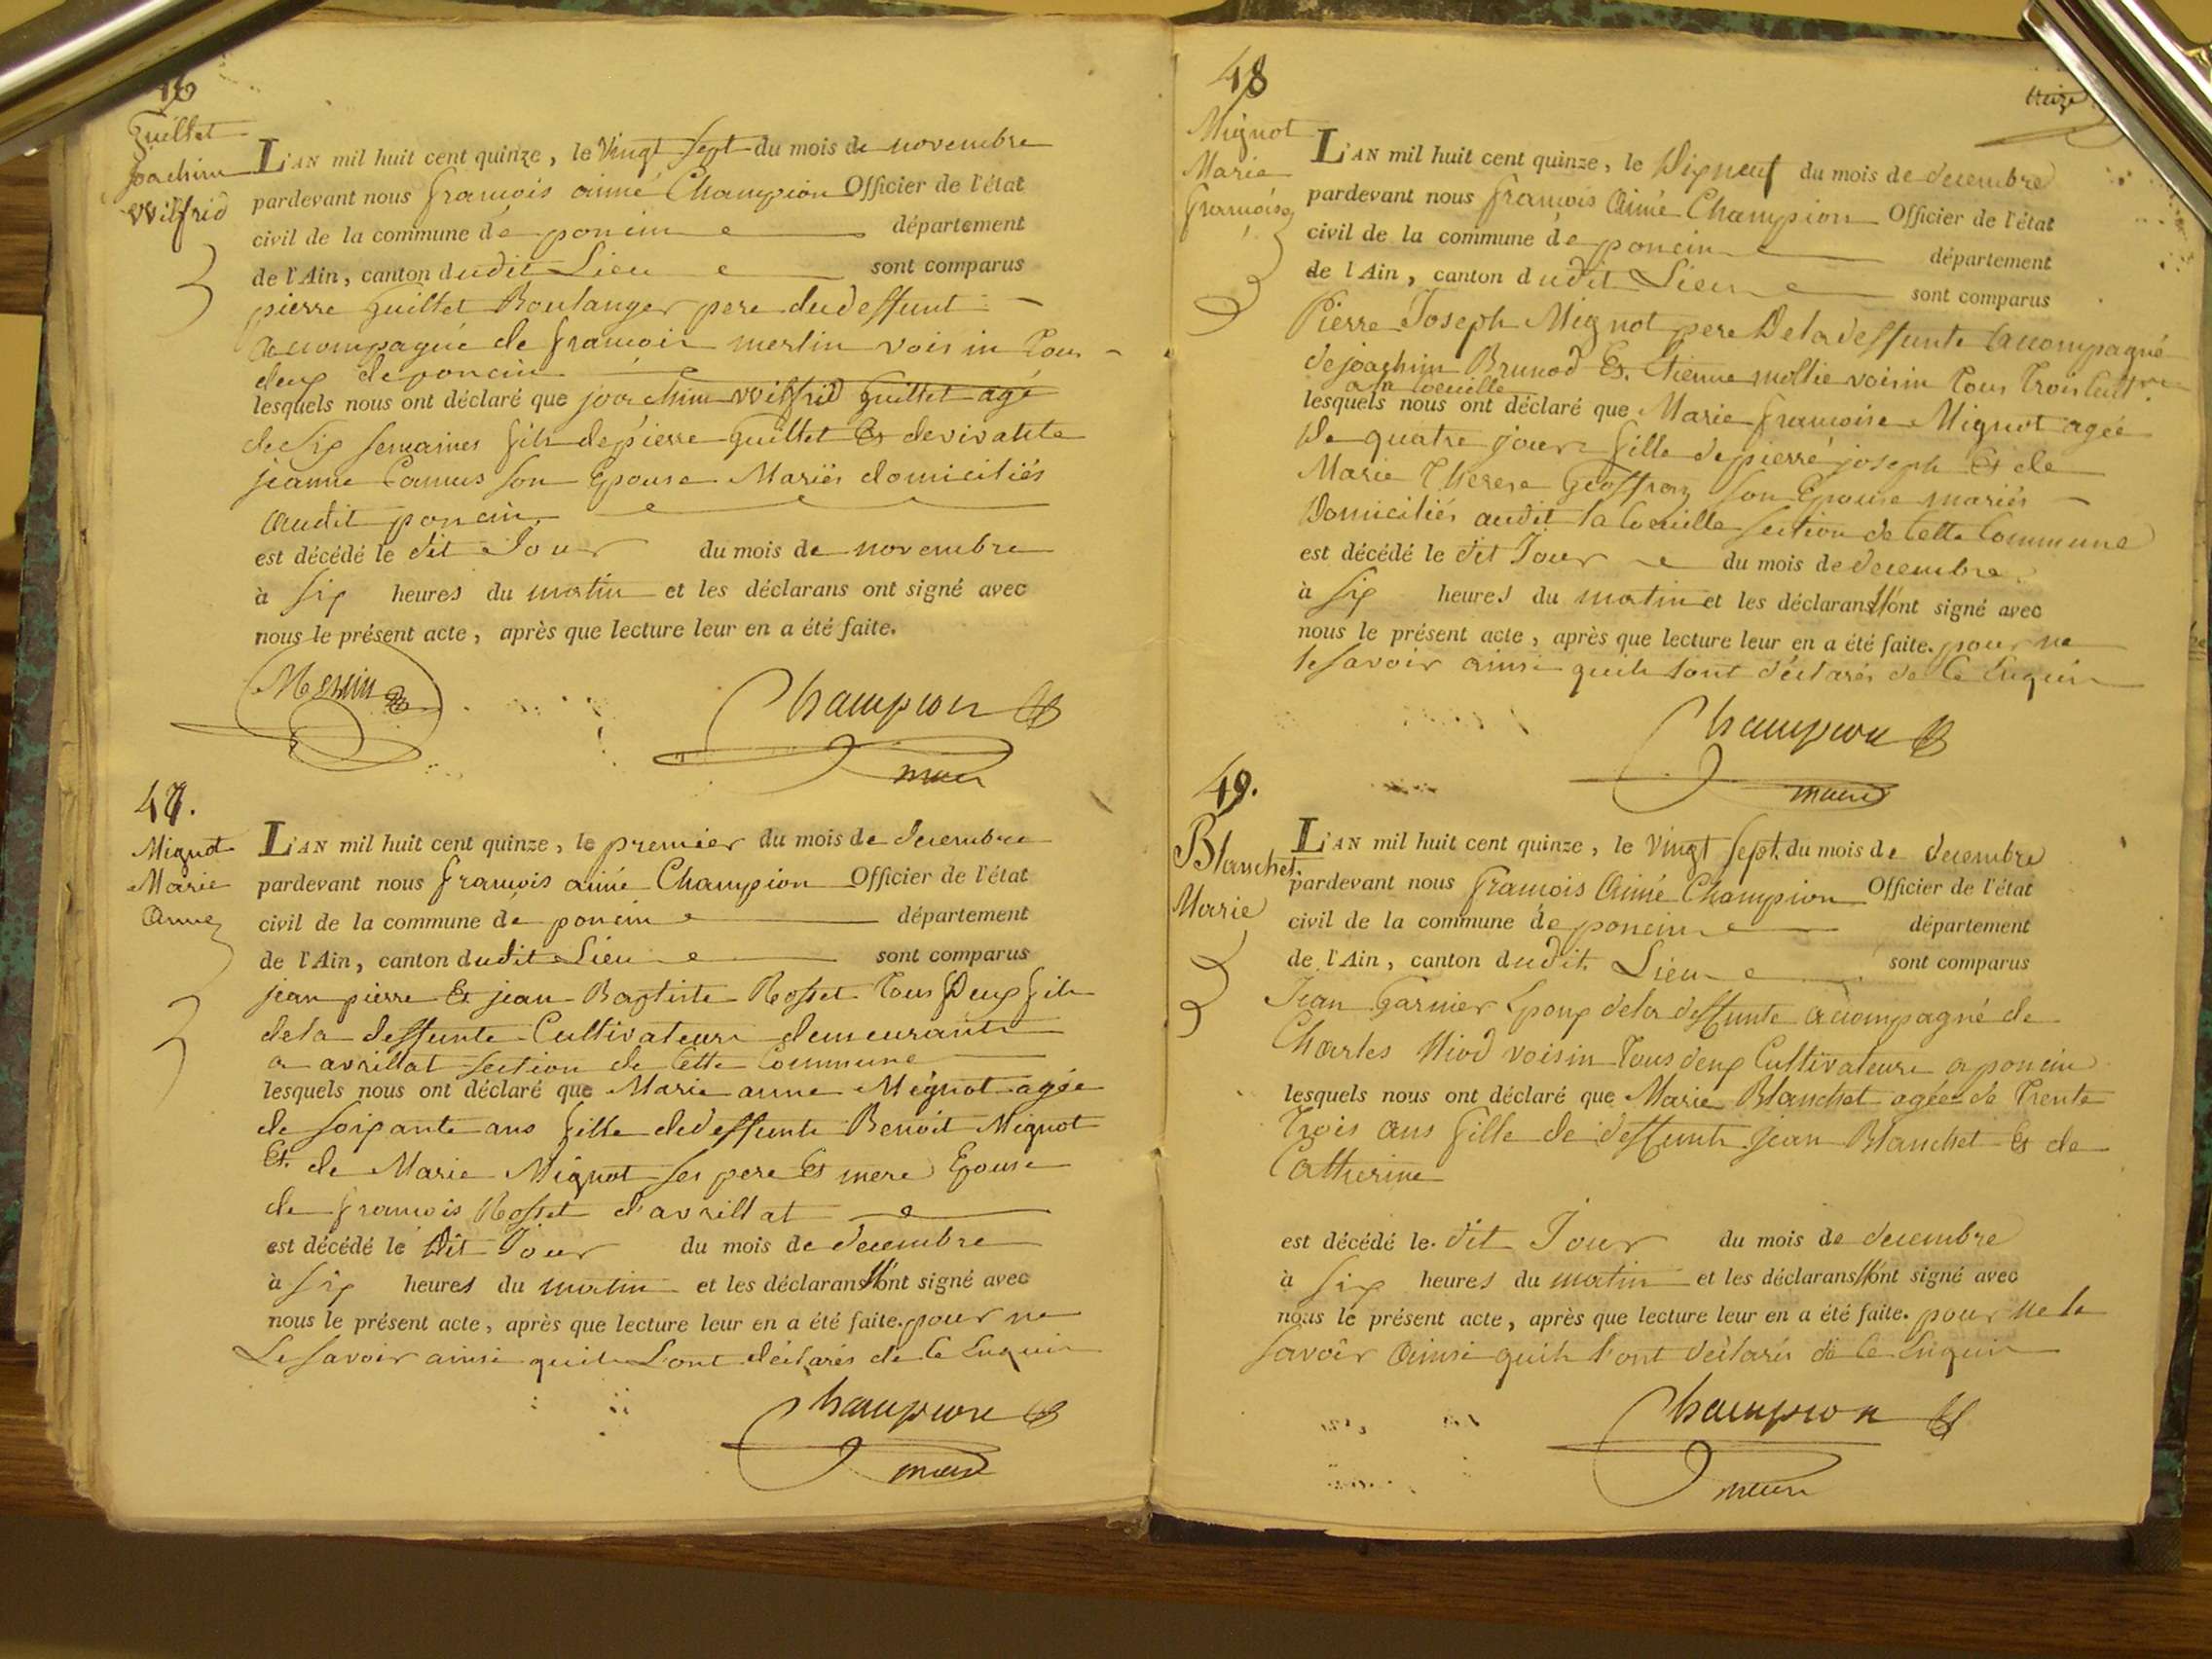 46
Guillet
Joachim
Wilfrid
L'AN mil huit cent quinze, le Vingt Sept du mois de novembre
pardevant nous françois aimé Champion Officier de l'état
civil de la commune de poncin département
de l'Ain, canton dudit Lieu sont comparus
pierre Guillet Boulanger pere du deffunt
accompagné de françois merlin voisin Tous
deux de poncin
lesquels nous ont déclaré que joachim wilfrid Guillet agé
de Six semaines fils de pierre Guillet Et de
jeanne Camus son Epouse Mariés domiciliés
audit poncin
est décédé le dit Jour du mois de novembre
à Six heures du matin et les déclarans ont signé avec
nous le présent acte, après que lecture leur en a été faite.
Merlin Champion
maire
47.
Mignot
Marie
Anne
L'AN mil huit cent quinze, le premier du mois de decembre
pardevant nous françois aimé Champion Officier de l'état
civil de la commune de poncin département
de l'Ain, canton dudit Lieu sont comparus
jean pierre Et jean Baptiste Rosset Tous Deux fils
de la deffunte Cultivateurs demeurants
a avrillat section de Cette Commune
lesquels nous ont déclaré que Marie anne Mignot agée
de soixante ans fille de deffunts Benoit Mignot
Et de Marie Mignot ses pere Et mere Epouse
de françois Rosset d'avrillat
est décédé le Dit Jour du mois de decembre
à Six heures du matin et les déclarans n'ont signé avec
nous le présent acte, après que lecture leur en a été faite. pour ne
Le savoir ainsi quils L'ont déclarés de Ce Enquis
Champion
maire
48
treize
Mignot
Marie
françoise
L'AN mil huit cent quinze, le Dixneuf du mois de decembre
pardevant nous françois Aimé Champion Officier de l'état
civil de la commune de poncin département
de l'Ain, canton dudit Lieu sont comparus
Pierre Joseph Mignot pere De la deffunte accompagné
de joachim Brunod Et Etienne voisin Tous Trois
a la Coeuille
lesquels nous ont déclaré que Marie françoise Mignot agée
De quatre jours fille de pierre joseph Et de
Marie Therese Geoffray son Epouse mariés
Domiciliés audit la Coeuille section de Cette Commune
est décédé le dit Jour du mois de decembre
à Six heures du matin et les déclarans n'ont signé avec
nous le présent acte, après que lecture leur en a été faite. pour ne
le savoir ainsi quils l'ont déclarés de Ce Enquis
Champion
maire
49.
Blanchet
Marie
L'AN mil huit cent quinze, le Vingt Sept du mois de decembre
pardevant nous françois Aimé Champion Officier de l'état
civil de la commune de poncin département
de l'Ain, canton dudit Lieu sont comparus
Jean Garnier Epoux de la deffunte accompagné de
Charles Niod voisin Tous deux Cultivateurs a poncin
lesquels nous ont déclaré que Marie Blanchet agée de Trente
Trois ans fille de deffunts jean Blanchet Et de
Catherine
est décédé le dit Jour du mois de decembre
à Six heures du matin et les déclarans n'ont signé avec
nous le présent acte, après que lecture leur en a été faite. pour ne le
savoir Ainsi quils l'ont déclarés de Ce Enquis
Champion
maire